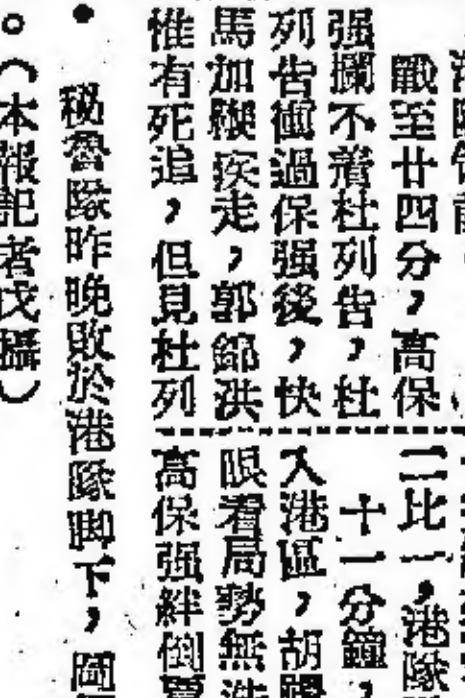 戰至廿四分，高保
强攔不着杜列告，杜
列告衝過保强後，快
馬加鞭疾走，郭錦洪
惟有死追，但見杜列
二比一，港隊
十一分鐘，
入港區，胡
眼看局勢無
高保强絆倒
● 秘魯隊昨晚敗於港隊脚下，圖
。（本報記者攝）